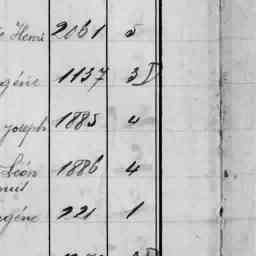 Henri 2061 5
gène 1137 3
Joseph 1885 4
Léon 1886 4
gène 221 1